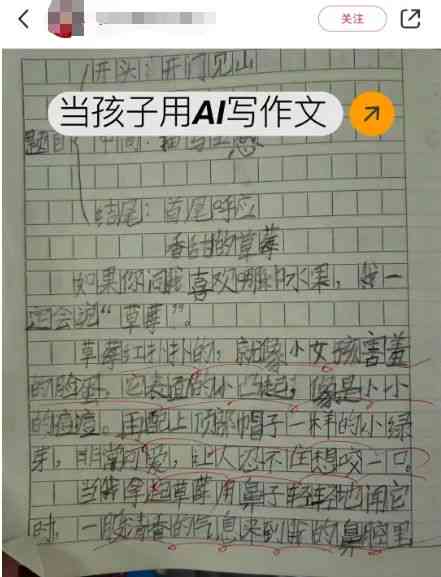 关注
开头：开门见山
当孩子用AI写作文
题目 中间：描写 感
结尾：首尾呼应
香甜的草莓
如果你问我喜欢哪种水果，我一
定会说“草莓”。
草莓红扑扑的，就像小女孩害羞
的脸蛋，它表面的小凸起，像是小小
的痘痘。再配上顶部帽子一样的小绿
芽，非常可爱，让人忍不住想咬一口。
当我拿起草莓用鼻子轻轻地闻它
时，一股清香的气息来到我的鼻腔里